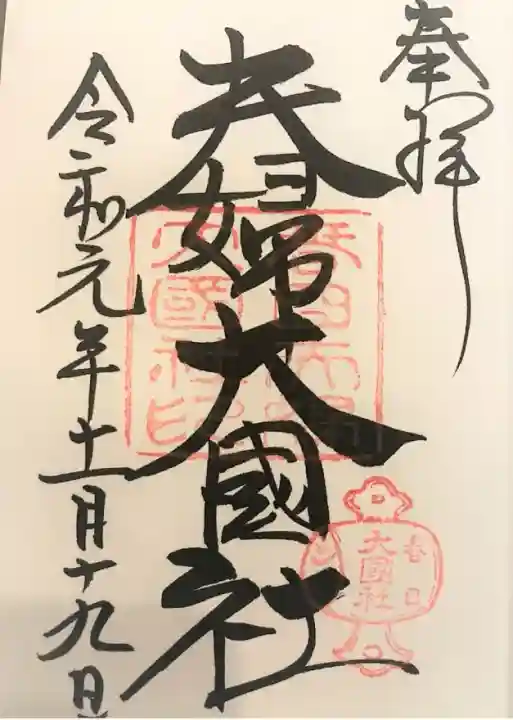 奉拝
夫婦大國社
令和元年十一月十九日
春日夫婦
大國社印
春日
大國社